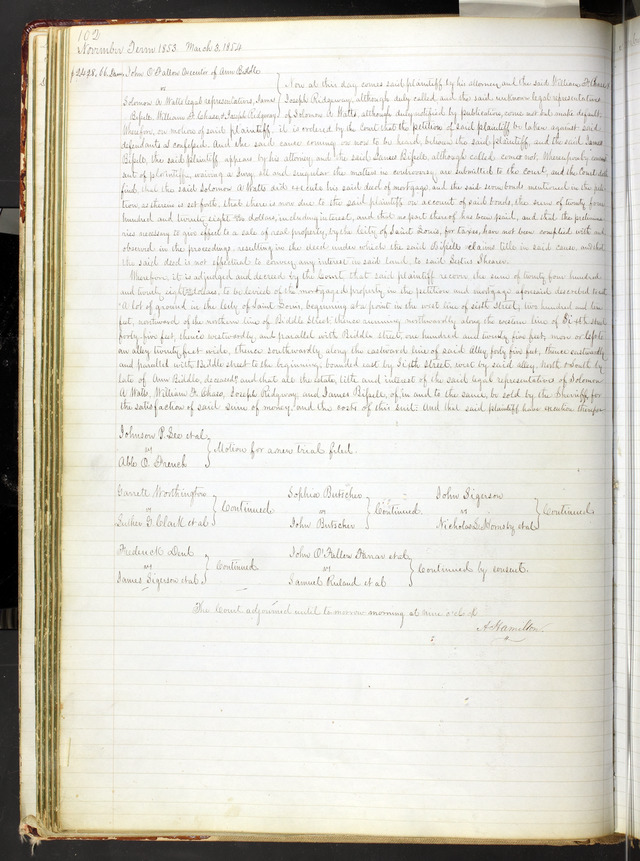 192
November Term 1853. March 3. 1854
$2428.66 Dam John O'Fallon Executor of Ann Biddle
vs
Solomon A Watts legal representatives, James
Bissell, William F. Chase, Joseph Ridgway
Now at this day comes said plaintiff by his attorney and the said William F. Chase
Joseph Ridgeway, although duly called and the said unknown legal representatives
of Solomon A. Watts, although duly notified by publication, come not but make default.
Wherefore, on motion of said plaintiff, it is ordered by the Court that the petition of said plaintiff be taken against said
defendants as confessed. And the said cause coming on now to be heard, between the said plaintiff, and the said James
Bissell, the said plaintiff appears by his attorney and the said James Bissell, although called comes not. Whereupon by
out of plaintiff, waiving a jury, all and singular the matters in controversy, are submitted to the Court, and the Court doth
find that the said Solomon A Watts did execute his said deed of mortgage, and the said seven bonds mentioned in the peti-
tion, as therein is set forth, that there is now due to the said plaintiff on account of said bonds, the sum of twenty four
hundred and twenty eight dollars, including interest, and that no part thereof has been paid, and that the prelimina-
ries necessary to give effect to a sale of real property, by the City of Saint Louis, for taxes, have not been complied with and
observed in the proceedings, resulting in the deed under which the said Bissell claims title in said cause, and that
the said deed is not effectual to convey any interest in said land, to said
Wherefore, it is adjudged and decreed by the Court that said plaintiff recover the sum of twenty four hundred
and twenty eight dollars, to be levied of the mortgaged property in the petition and mortgage aforesaid described to wit
A lot of ground in the City of Saint Louis, beginning at a point in the west line of sixth Street, two hundred and
feet, northward of the northern line of Biddle Street thence running northwardly along the western line of Sixth street
forty five feet, thence westwardly and parallel with Biddle street, one hundred and twenty five feet, more or less to
an alley twenty feet wide, thence southwardly along the eastward line of said Alley forty five feet, thence eastwardly
and parallel with Biddle street to the beginning, bounded east by Sixth street, west by said alley, North & South by
lots of Ann Biddle, deceased, and that all the estate, title and interest of the said legal representatives of Solomon
A Watts, William F. Chase, Joseph Ridgway and James Bissell, of, in and to the same, be sold by the Sheriff, for
the satisfaction of said sum of money, and the costs of this suit. And that said plaintiff have execution therefor
Johnson P. Lee et al
vs
Able O. French
Motion for a new trial filed.
Garrett Worthington
vs
Luther G. Clark et al
Continued
Sophia Butscher
vs
John Butscher
Continued
John Sigerson
vs
Nicholas L. Hornsby et al
Continued
Frederick Dent
vs
James Sigerson et al
Continued
John O'Fallon et al
vs
Samuel Ruland et al
Continued by consent.
The Court adjourned until tomorrow morning at nine o'clk
A. Hamilton